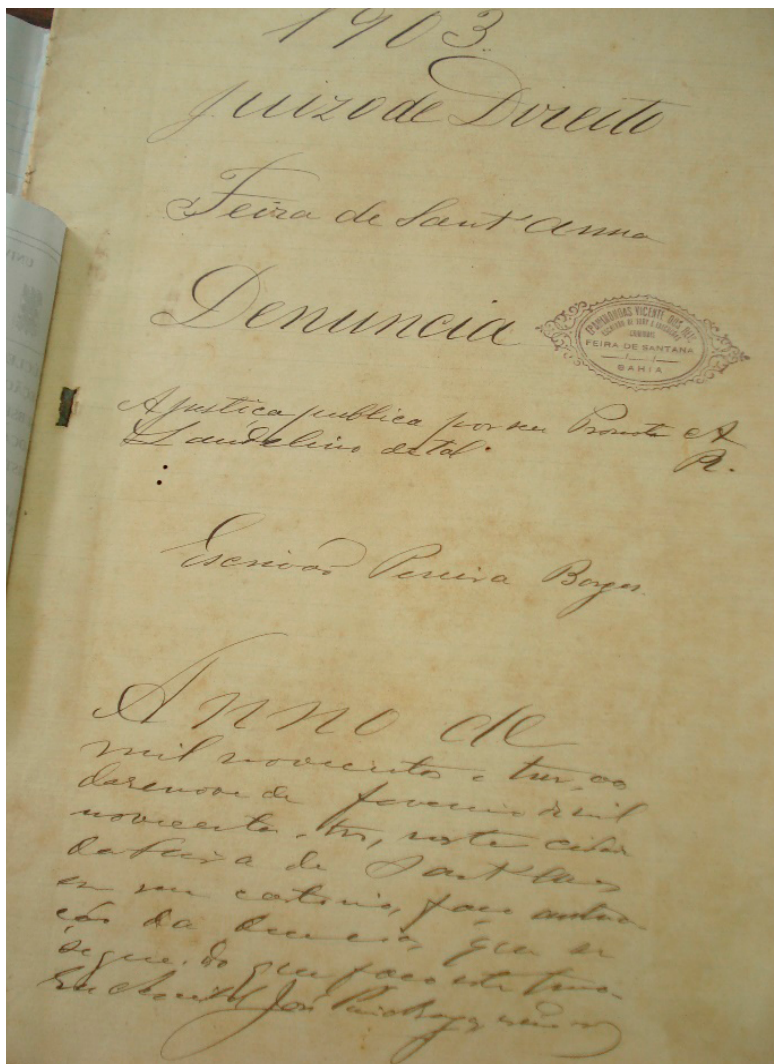 1903.
Juizo de Direito
Feira de Sant'Anna
Denuncia
VICENTE DOS REIS
FEIRA DE SANTANA
BAHIA
A justiça publica por seu Promotor A
Laudelino de tal. R.
Escrivão Pereira Borges.
Anno de
mil novecentos e tres, ao
desenove de fevereiro de mil
novecentos e tres, nesta cida
da Feira de Sant'Anna
em meu cartorio, faço autua
ção da denuncia, que se
segue. Do que faço este termo.
Eu José Borges escrivão